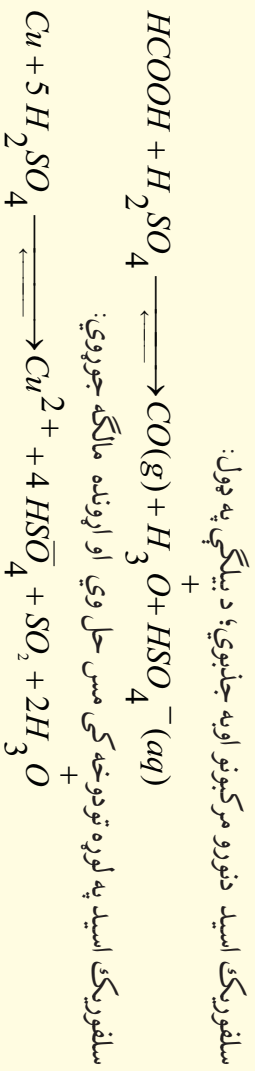 سلفوریک اسید دنورو مرکبونو اوبه جذبوي؛ د بیلګې په ډول:
HCOOH + H₂SO₄ ⇌ CO(g) + H₃O⁺ + HSO₄⁻(aq)
سلفوریک اسید په لوړه تودوخه کې مس حل وي او اړونده مالګه جوړوي:
Cu + 5H₂SO₄ ⇌ Cu²⁺ + 4HSO₄⁻ + SO₂ + 2H₃O⁺